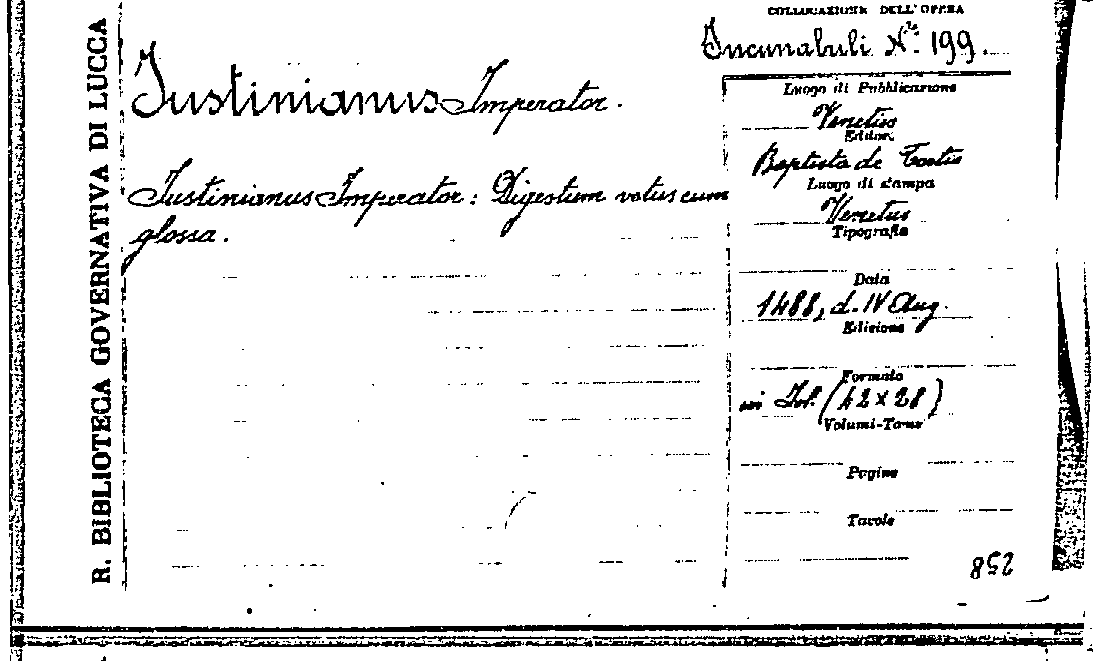 R. BIBLIOTECA GOVERNATIVA DI LUCCA
COLLOCAZIONE DELL'OPERA
Incunabuli N.º 199.
Justinianus Imperator.
Justinianus Imperator: Digestum vetus cum
glossa.
Luogo di Pubblicazione
Venetiis
Editore
Baptista de Tortis
Luogo di stampa
Venetiis
Tipografia
Data
1488, d. IV Aug.
Edizione
Formato
in fol. (42x28)
Volumi-Tomi
Pagine
Tavole
852